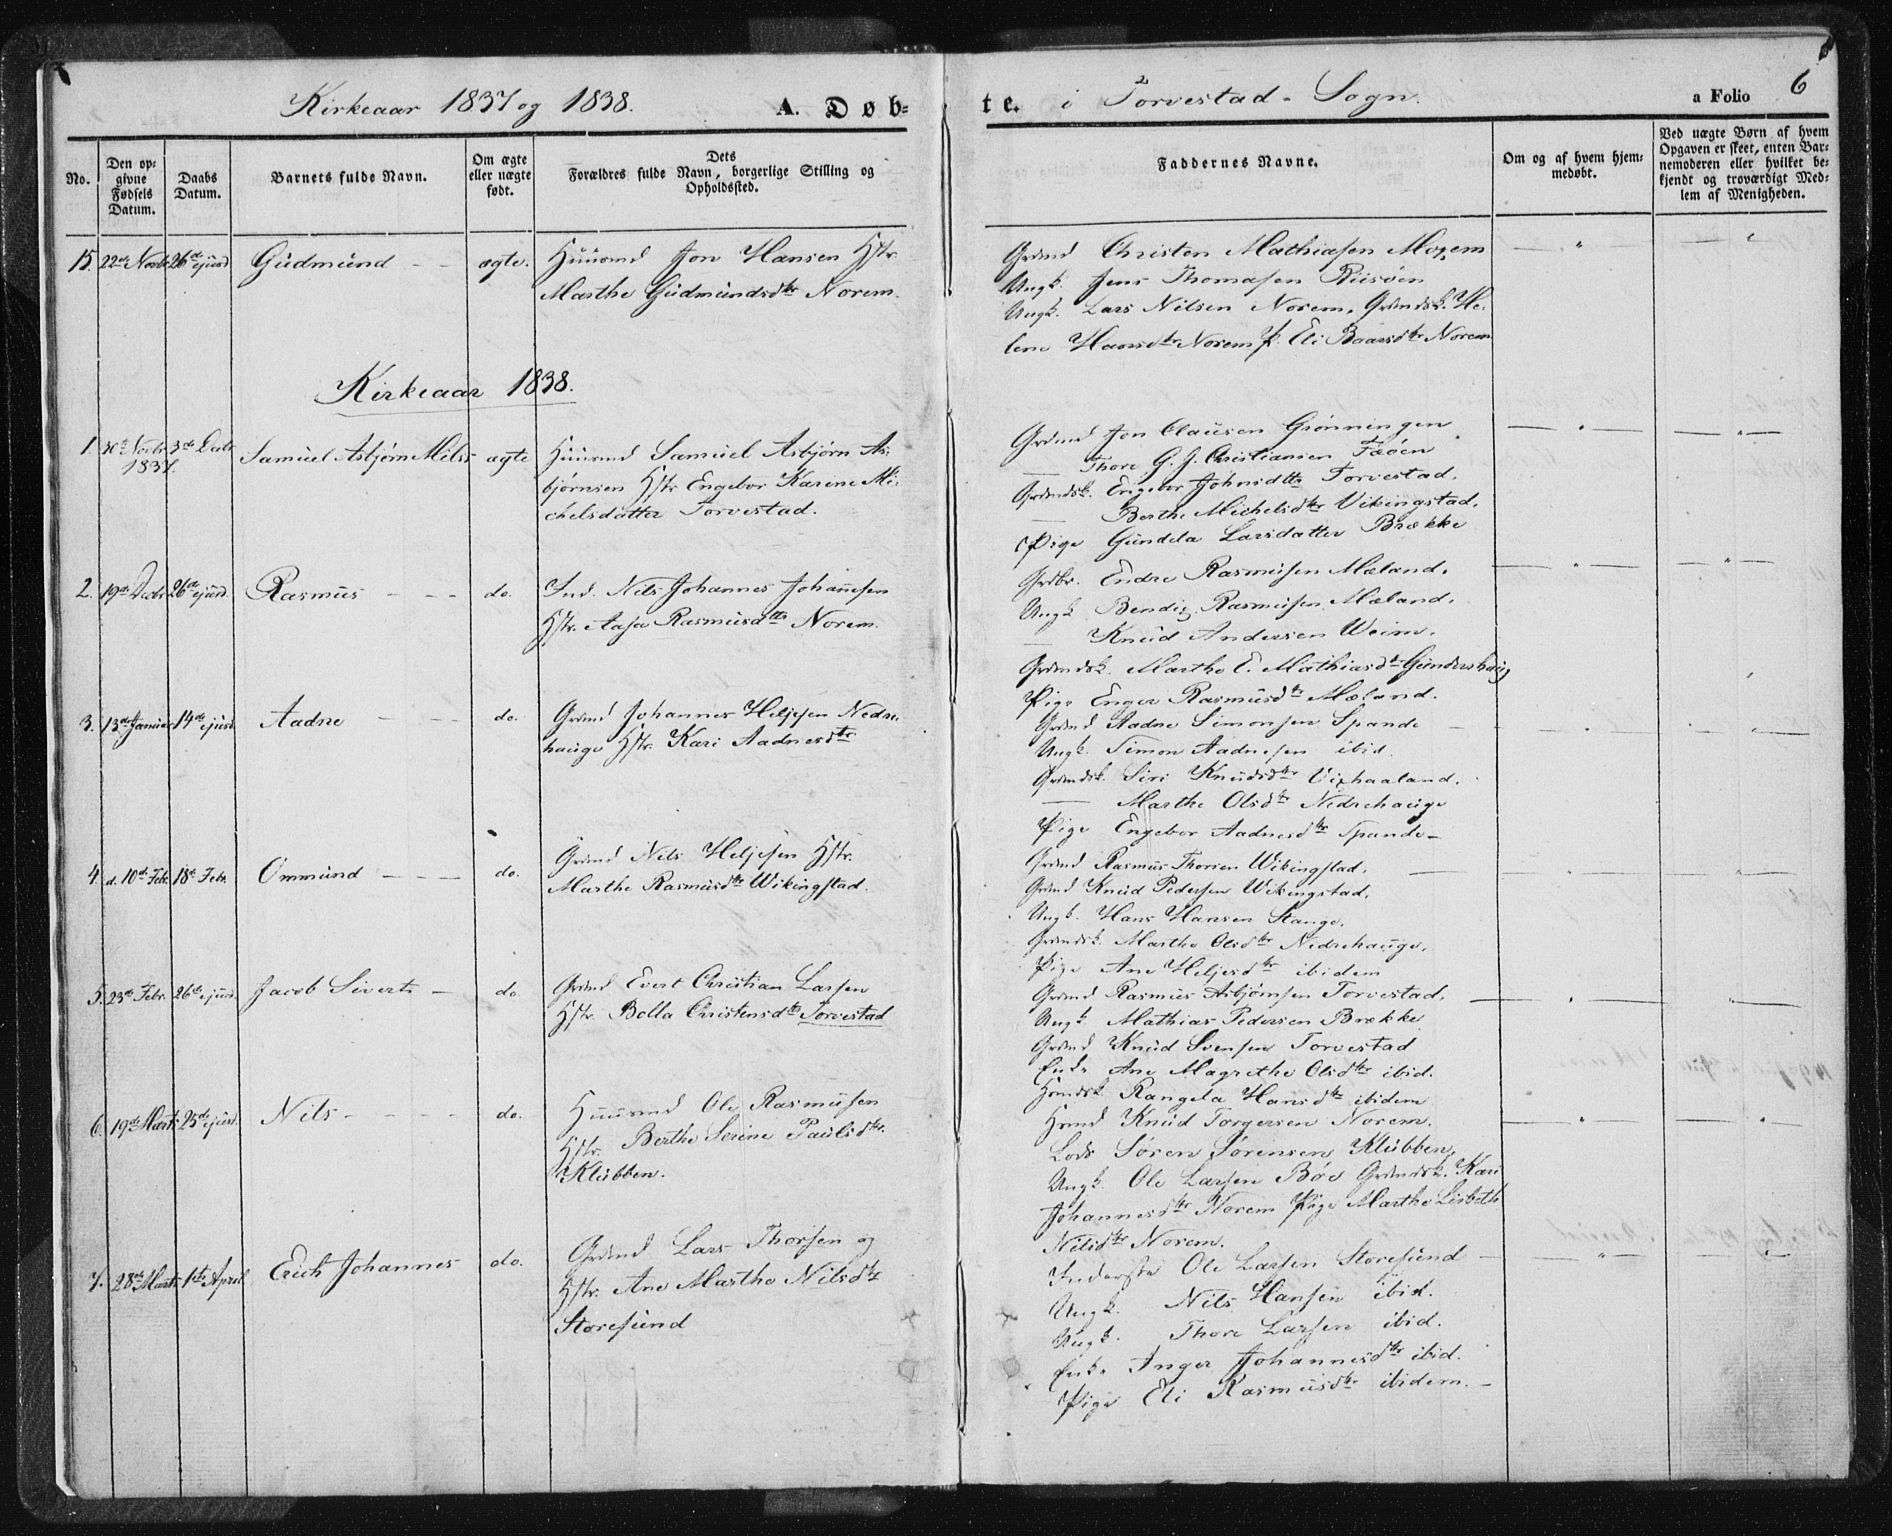 Kirkeaar 1837 og 1838. A. Døb-
te. i Torvestad-Sogn. a Folio 6
No.
Den op-
givne
Fødsels
Datum.
Daabs
Datum.
Barnets fulde Navn.
Om ægte
eller uægte
født.
Dets
Forældres fulde Navn, borgerlige Stilling og
Opholdssted.
Faddernes Navne.
Om og af hvem hjem-
medøbt.
Ved uægte Børn af hvem
Opgaven er skeet, enten Bar-
nemoderen eller hvilket be-
kjendt og troværdigt Med-
lem af Menigheden.
15. 22de Novbr 26de ejusd Gudmund ægte. Huusmd Jon Hansen Hstr.
Marthe Gudmundsdtr Norem.
Grdmd Christen Mathiasen
Ungk. Jens Thomasen Riisøen
Ungk. Lars Nilsen Norem. Grdmdsk. He-
lene Hansdtr Norem P. Eli Baarsdtr Norem
Kirkeaar 1838.
1 30te Novbr 3de Decbr Samuel Asbjørn ægte Huusmd Samuel Asbjørn As-
1837. bjørnsen Hstr Engebor Karine Mi-
chelsdatter Torvestad.
Grdmd Jon Clausen Grønningen
— Thore G. J. Christiansen Fæøen
Grdmdsk. Engebor Johnsdtr Torvestad.
— Berthe Michelsdtr Vikingstad.
Pige Gundela Larsdatter Brække
2. 19de Decbr 26de ejusd. Rasmus do. Ind. Nils Johannes Johanesen
Hstr. Aasa Rasmusdtr Norem.
Grdbr. Endre Rasmusen Mæland.
Ungk Bendig Rasmusen Mæland.
Knud Andersen Weim.
Grdmdsk. Marthe E. Mathiasdtr Gundershaug
Pige Enger Rasmusdtr Mæland.
3. 13de Januar 14de ejusd. Aadne do. Grdmd Johannes Heljesen Nedre-
hauge Hstr. Kari Aadnesdtr
Grdmd Aadne Simonsen Spande
Ungk. Simon Aadnesen ibid.
Grdmdsk. Siri Knudsdtr
— Marthe Olsdtr Nedrehauge
Pige Engebor Aadnesdtr Spande
4. d. 10de Febr. 18de Febr. Ommund do. Grdmd Nils Heljesen Hstr.
Marthe Rasmusdtr Wikingstad.
Grdmd Rasmus Thorsen Wikingstad.
Grdmd Knud Pedersen Wikingstad.
Ungk. Hans Hansen Stange.
Grdmdsk. Marthe Olsdtr Nedrehauge.
Pige Ane Heljesdtr ibidem
5. 23de Febr. 26de ejusd. Jacob Sivert do. Grdmd Evert Christian Larsen
Hstr. Bolla Christensdtr Torvestad
Grdmd Rasmus Asbjørnsen Torvestad.
Ungk. Mathias Pedersen Brække
Grdmd Knud Svensen Torvestad
Enke Ane Magrethe Olsdtr ibid.
Hsmdsk Rangela Hansdtr ibidem
6. 19de Marts 25de ejusd. Nils do. Huusmd Ole Rasmusen
Hstr. Berthe Serine Paulsdtr.
Klubben.
Hsmd Knud Torgersen Norem.
Lods Søren Sørensen Klubben.
Ungk. Ole Larsen Bøe Grdmdsk. Kari
Johannesdtr Norem Pige Marthe Lisbeth
Nilsdtr Norem.
7. 28de Marts 1ste April Erich Johannes do. Grdmd Lars Thorsen og
Hstr. Ane Marthe Nilsdtr
Storesund
Inderste Ole Larsen Storesund
Ungk. Nils Hansen ibid.
Ungk. Thore Larsen ibid.
Enke Inger Johannesdtr ibid.
Pige Eli Rasmusdtr ibidem.